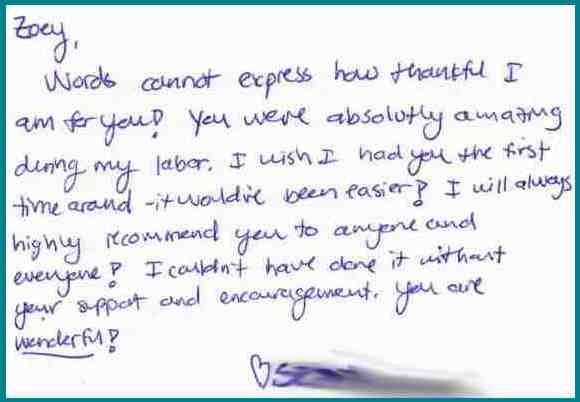 Zoey,
Words cannot express how thankful I
am for you! You were absolutly amazing
during my labor. I wish I had you the first
time around - it would've been easier! I will always
highly recommend you to anyone and
everyone! I couldn't have done it without
your support and encouragement. You are
wonderful!